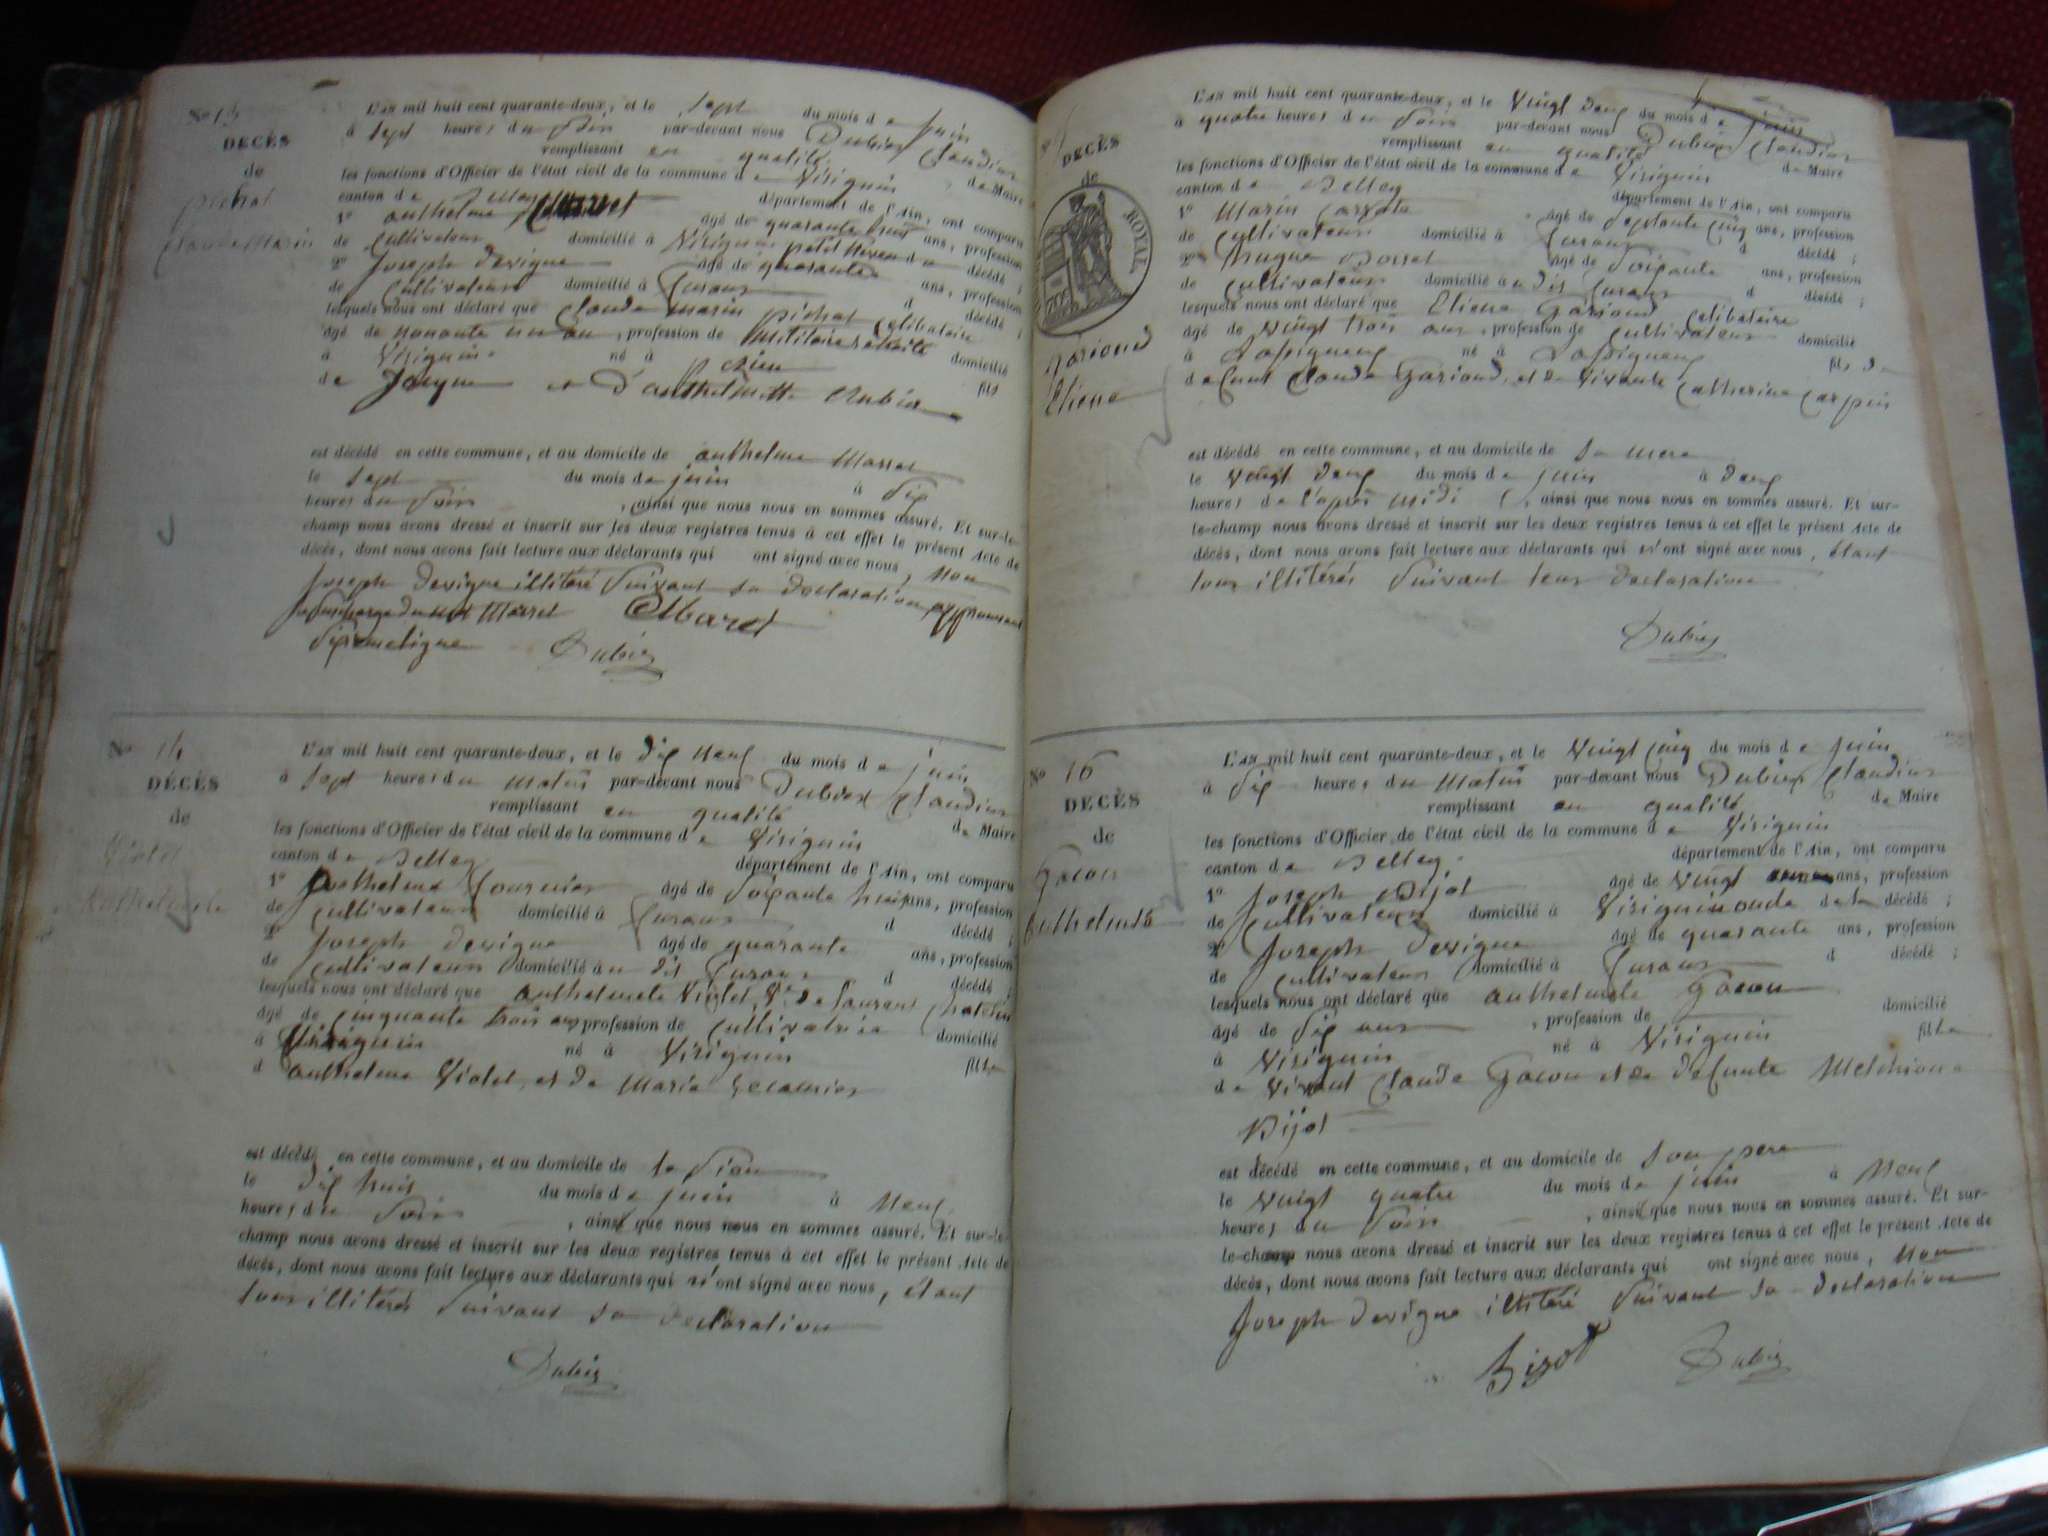 No 13
DECÈS
de
pichat
Claude Marin
L'an mil huit cent quarante-deux, et le sept du mois de juin
à sept heures du soir par-devant nous Dubiez Claudius
remplissant en qualité de Maire
les fonctions d'Officier de l'état civil de la commune de Virignin
canton de Belley département de l'Ain, ont comparu
1º anthelme Marret âgé de quarante huit ans, profession
de Cultivateur domicilié à Virignin petit neveu du décédé ;
2º Joseph Devigne âgé de quarante ans, profession
de Cultivateur domicilié à d décédé ;
lesquels nous ont déclaré que Claude marin pichat Célibataire
âgé de nonante un an, profession de Militaire retraité domicilié
à Virignin né à fils
de Jacque et d'anthelmette Rubin
est décédé en cette commune, et au domicile de anthelme Marret
le sept du mois de juin à six
heures du soir, ainsi que nous nous en sommes assuré. Et sur-le-
champ nous avons dressé et inscrit sur les deux registres tenus à cet effet le présent Acte de
décès, dont nous avons fait lecture aux déclarants qui ont signé avec nous, non
Joseph Devigne illitéré suivant sa déclaration approuvant
la surcharge du mot Marret
sixième ligne Dubiez
No 14
DÉCÈS
de
Violet
Anthelmete
L'an mil huit cent quarante-deux, et le dix neuf du mois de juin
à sept heures du matin par-devant nous Dubiez Claudius
remplissant en qualité de Maire
les fonctions d'Officier de l'état civil de la commune de Virignin
canton de Belley département de l'Ain, ont comparu
1º Anthelme Fournier âgé de soixante huit ans, profession
de cultivateur domicilié à d décédé ;
2º Joseph Devigne âgé de quarante ans, profession
de cultivateur domicilié au dit d décédé ;
lesquels nous ont déclaré que anthelmete Violet, Ve de laurent Chatelin
âgé de cinquante trois ans profession de cultivatrice domicilié
à Virignin né à Virignin fille
d anthelme Violet et de Marie
est décédé en cette commune, et au domicile de le sien
le dix huit du mois de juin à neuf
heures du soir, ainsi que nous nous en sommes assuré. Et sur-le-
champ nous avons dressé et inscrit sur les deux registres tenus à cet effet le présent Acte de
décès, dont nous avons fait lecture aux déclarants qui n'ont signé avec nous, étant
tous illitérés suivant sa declaration
Dubiez
DECÈS
de
ROYAL
Garioud
Etiene
L'an mil huit cent quarante-deux, et le vingt deux du mois de juin
à quatre heures du soir par-devant nous Dubiez Claudius
remplissant en qualité de Maire
les fonctions d'Officier de l'état civil de la commune de Virignin
canton de Belley département de l'Ain, ont comparu
1º Marin âgé de septante cinq ans, profession
de cultivateur domicilié à d décédé ;
2º hugue Borset âgé de soixante ans, profession
de cultivateur domicilié au dit d décédé ;
lesquels nous ont déclaré que Etiene Garioud Celibataire
âgé de vingt trois ans, profession de cultivateur domicilié
à né à fils d
de feut Claude Garioud, et de vivante Catherine Carpin
est décédé en cette commune, et au domicile de sa mere
le vingt deux du mois de juin à deux
heures de l'apres midi, ainsi que nous nous en sommes assuré. Et sur-
le-champ nous avons dressé et inscrit sur les deux registres tenus à cet effet le présent Acte de
décès, dont nous avons fait lecture aux déclarants qui n'ont signé avec nous, étant
tous illitérés suivant leur declaration
Dubiez
No 16
DECÈS
de
Gacon
Anthelmete
L'an mil huit cent quarante-deux, et le vingt cinq du mois de juin
à six heures du matin par-devant nous Dubiez Claudius
remplissant en qualité de Maire
les fonctions d'Officier de l'état civil de la commune de Virignin
canton de Belley département de l'Ain, ont comparu
1º Joseph Bijot âgé de vingt ans, profession
de cultivateur domicilié à Virignin oncle de la décédé ;
2º Joseph Devigne âgé de quarante ans, profession
de cultivateur domicilié à d décédé ;
lesquels nous ont déclaré que anthelmete Gacon
âgé de six ans, profession de domicilié
à Virignin né à Virignin fille
de vivant Claude Gacon et de défunte Melchione
Bijot
est décédé en cette commune, et au domicile de son pere
le vingt quatre du mois de juin à neuf
heures du soir, ainsi que nous nous en sommes assuré. Et sur-
le-champ nous avons dressé et inscrit sur les deux registres tenus à cet effet le présent Acte de
décès, dont nous avons fait lecture aux déclarants qui ont signé avec nous, non
Joseph Devigne illitéré suivant sa declaration
Bizot Dubiez